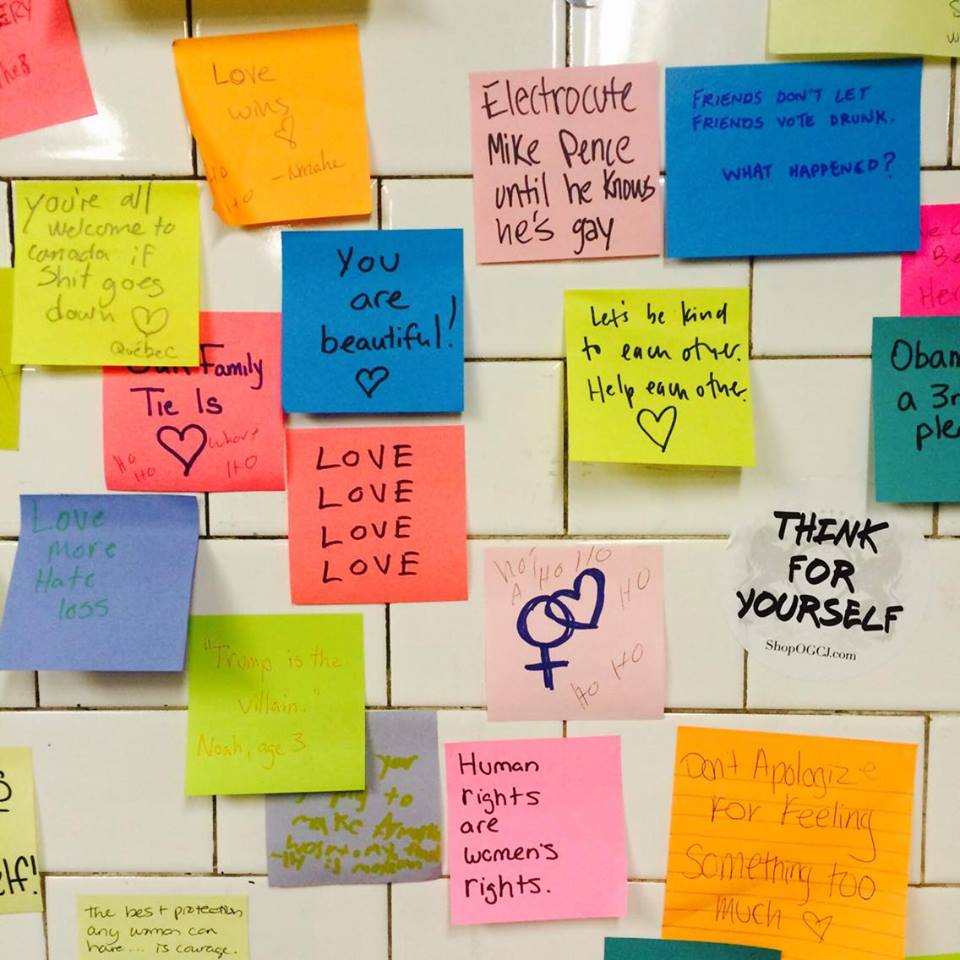 ERY
Love
wins
HO
HO
Electrocute
Mike Pence
until he knows
he's gay
FRIENDS DON'T LET
FRIENDS VOTE DRUNK.
WHAT HAPPENED?
you're all
welcome to
Canada if
Shit goes
down
Québec
You
are
beautiful!
Let's be kind
to each other.
Help each other.
Be
Her
Obam
a 3r
plea
Our Family
Tie Is
Ho
Ho
HO
LOVE
LOVE
LOVE
LOVE
Love
more
Hate
loss
HO
HO
HO
HO
HO
THINK
FOR
YOURSELF
ShopOGCJ.com
"Trump is the
villain."
Noah, age 3
your
to
make
Human
rights
are
women's
rights.
Don't Apologize
For Feeling
Something too
much
S
elf!
the best protection
any woman can
have... is courage.